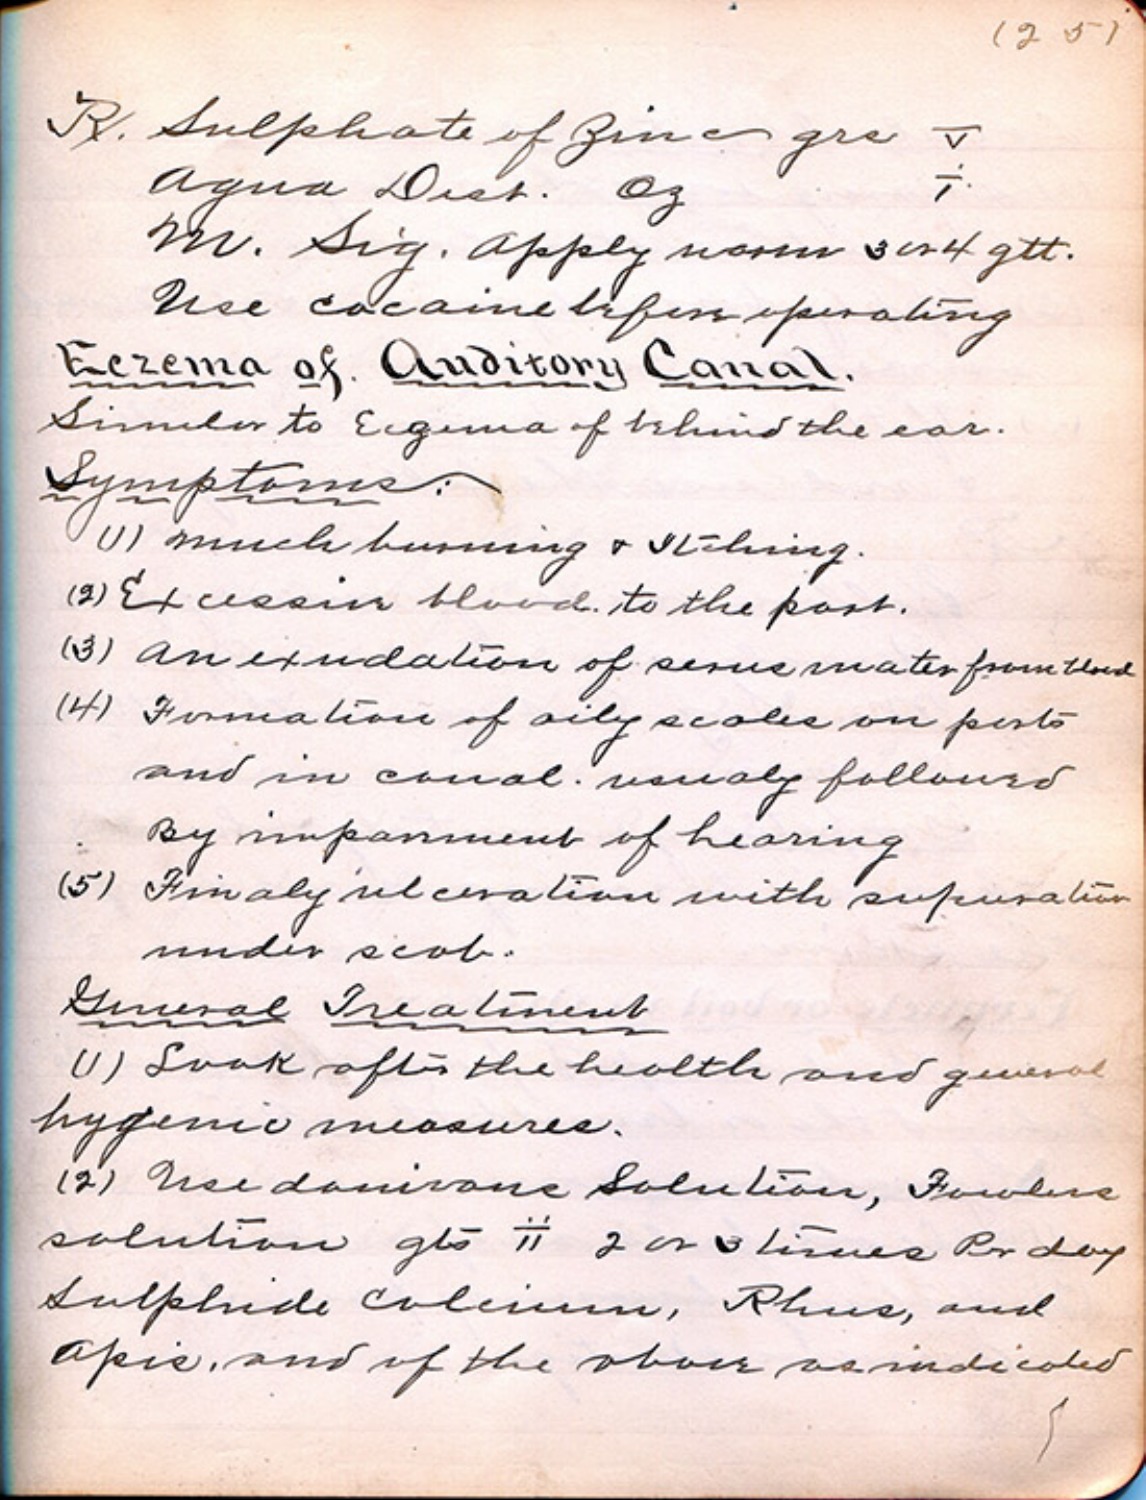 (25)
Rx. Sulphate of Zinc grs v
Aqua Dest. Oz i
M. Sig. Apply warm 3 or 4 gtt.
Use cocaine before operating
Eczema of Auditory Canal.
Similar to Eczema of behind the ear.
Symptoms:
(1) much burning & Itching.
(2) Excessive blood. to the part.
(3) An exudation of serus mater from blood
(4) Formation of oily scales on parts
and in canal. usualy followed
By impairment of hearing
(5) Finaly ulceration with supuration
under scab.
General Treatment
(1) Look after the health and general
hygenic measures.
(2) Use donivans Solution, Fowlers
solution gts ii 2 or 3 times Per day
Sulphide Calcium, Rhus, and
Apis. and of the above as indicated